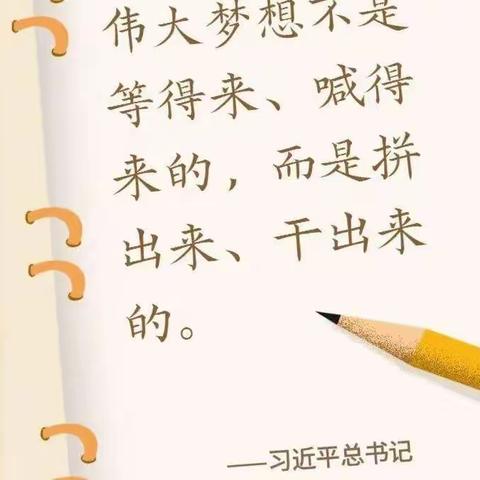 伟大梦想不是
等得来、喊得
来的，而是拼
出来、干出来
的。
——习近平总书记